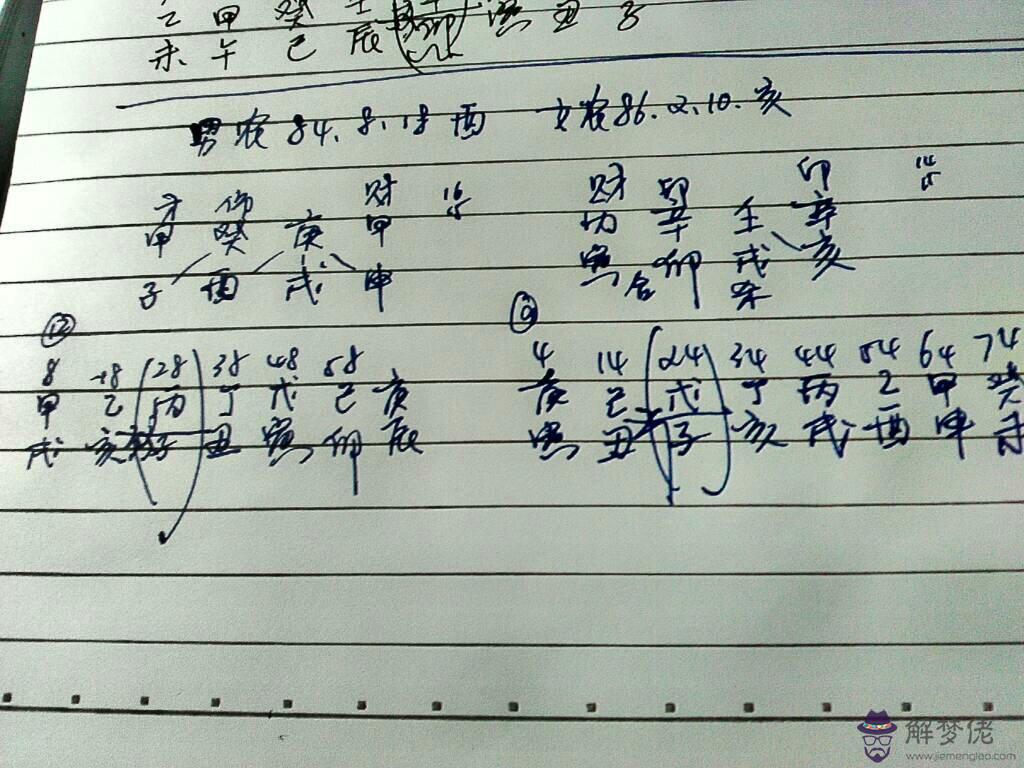 乙 甲 癸 壬
未 午 巳 辰 卯 寅 丑 子
男农84.8.18酉 女农86.2.10.亥
才 伤 财 16 财 印 印 14
甲 癸 庚 甲 丙 辛 壬 辛
子 酉 戌 申 寅 合 卯 戌 亥
⑫
8 18 28 38 48 58 4 14 24 34 44 54 64 74
甲 乙 丙 丁 戊 己 庚 庚 己 戊 丁 丙 乙 甲 癸
戌 亥 子 丑 寅 卯 辰 寅 丑 子 亥 戌 酉 申 未
解梦佬
www.jiemenglao.com